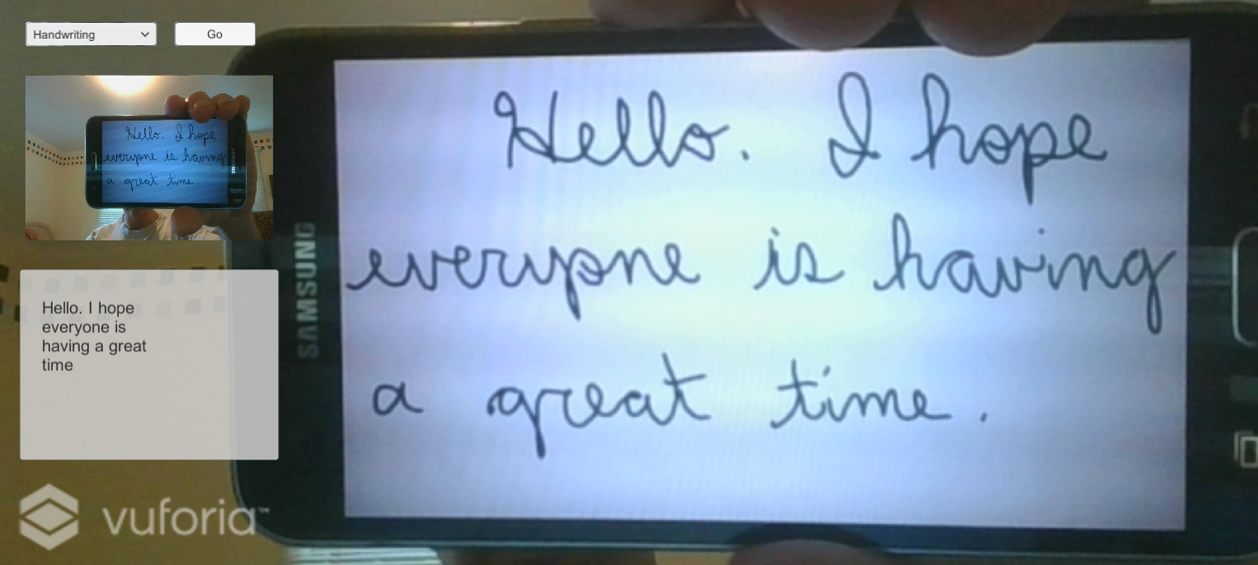 Handwriting
Go
Hello. I hope
everyone is having
a great time.
Hello. I hope
everyone is having
a great time
SAMSUNG
Hello. I hope
everyone is
having a great
time
vuforia™